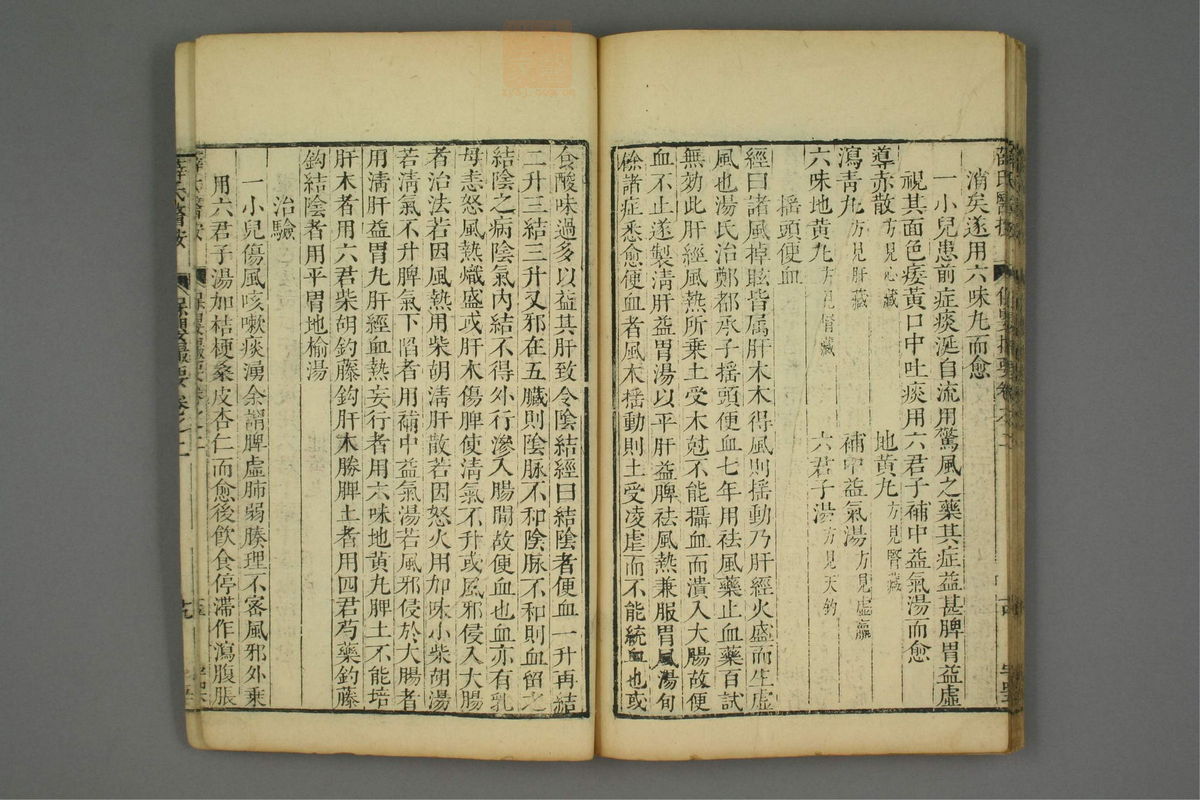 消矣遂用六味丸而愈
一小兒患前症痰涎自流用驚風之藥其症益甚脾胃益虛
視其面色痿黃口中吐痰用六君子補中益氣湯而愈
導赤散方見心藏 地黃丸方見腎藏
瀉青丸方見肝藏 補中益氣湯方見虛羸
六味地黃丸方見腎藏 六君子湯方見天釣
搖頭便血
經曰諸風掉眩皆属肝木木得風則搖動乃肝經火盛而生虛
風也湯氏治鄭都承子搖頭便血七年用祛風藥止血藥百試
無効此肝經風熱所乗土受木尅不能攝血而潰入大腸故便
血不止遂製清肝益胃湯以平肝益脾祛風熱兼服胃風湯旬
餘諸症悉愈便血者風木搖動則土受凌虐而不能統血也或
食酸味過多以益其肝致令陰結經曰結陰者便血一升再結
二升三結三升又邪在五臓則陰脉不和陰脉不和則血留之
結陰之病陰氣內結不得外行滲入腸間故便血也血亦有乳
母恚怒風熱熾盛或肝木傷脾使清氣不升或風邪侵入大腸
者治法若因風熱用柴胡清肝散若因怒火用加味小柴胡湯
若清氣不升脾氣下陷者用補中益氣湯若風邪侵於大腸者
用清肝益胃丸肝經血熱妄行者用六味地黃丸脾土不能培
肝木者用六君柴胡釣藤鈎肝木勝脾土者用四君芍藥釣藤
鈎結陰者用平胃地榆湯
治驗
一小兒傷風咳嗽痰湧余謂脾虛肺弱腠理不密風邪外乗
用六君子湯加桔梗桑皮杏仁而愈後飲食停滯作瀉腹脹
薛氏醫按 保嬰撮要卷之二